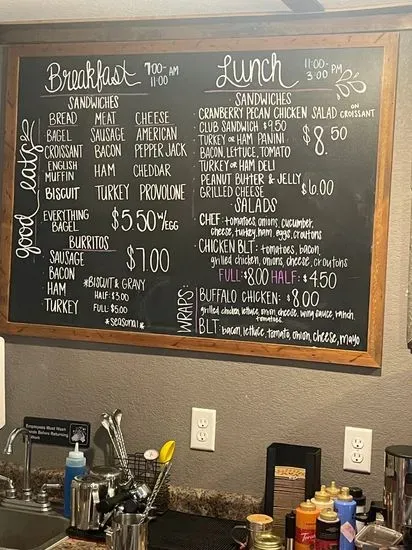 good eats
Breakfast 7:00-AM
11:00
SANDWICHES
BREAD MEAT CHEESE
BAGEL SAUSAGE AMERICAN
CROISSANT BACON PEPPER JACK
ENGLISH MUFFIN HAM CHEDDAR
BISCUIT TURKEY PROVOLONE
EVERYTHING BAGEL $5.50 W/EGG
BURRITOS
SAUSAGE
BACON
HAM
TURKEY
$7.00
*BISCUIT & GRAVY
HALF: $3.00
FULL: $5.00
*SEASONAL*
Lunch 11:00-
3:00 PM
SANDWICHES
CRANBERRY PECAN CHICKEN SALAD ON CROISSANT
CLUB SANDWICH $9.50
TURKEY OR HAM PANINI
BACON, LETTUCE, TOMATO
TURKEY OR HAM DELI
$8.50
PEANUT BUTTER & JELLY
GRILLED CHEESE
$6.00
SALADS
CHEF: tomatoes, onions, cucumber,
cheese, turkey, ham, eggs, croutons
CHICKEN BLT: tomatoes, bacon,
grilled chicken, onions, cheese, croutons
FULL: $8.00 HALF: $4.50
WRAPS:
BUFFALO CHICKEN: $8.00
grilled chicken, lettuce, onion, cheese, wing sauce, ranch,
tomatoes
BLT: bacon, lettuce, tomato, onion, cheese, mayo
Employees Must Wash
Hands Before
Returning
Torani